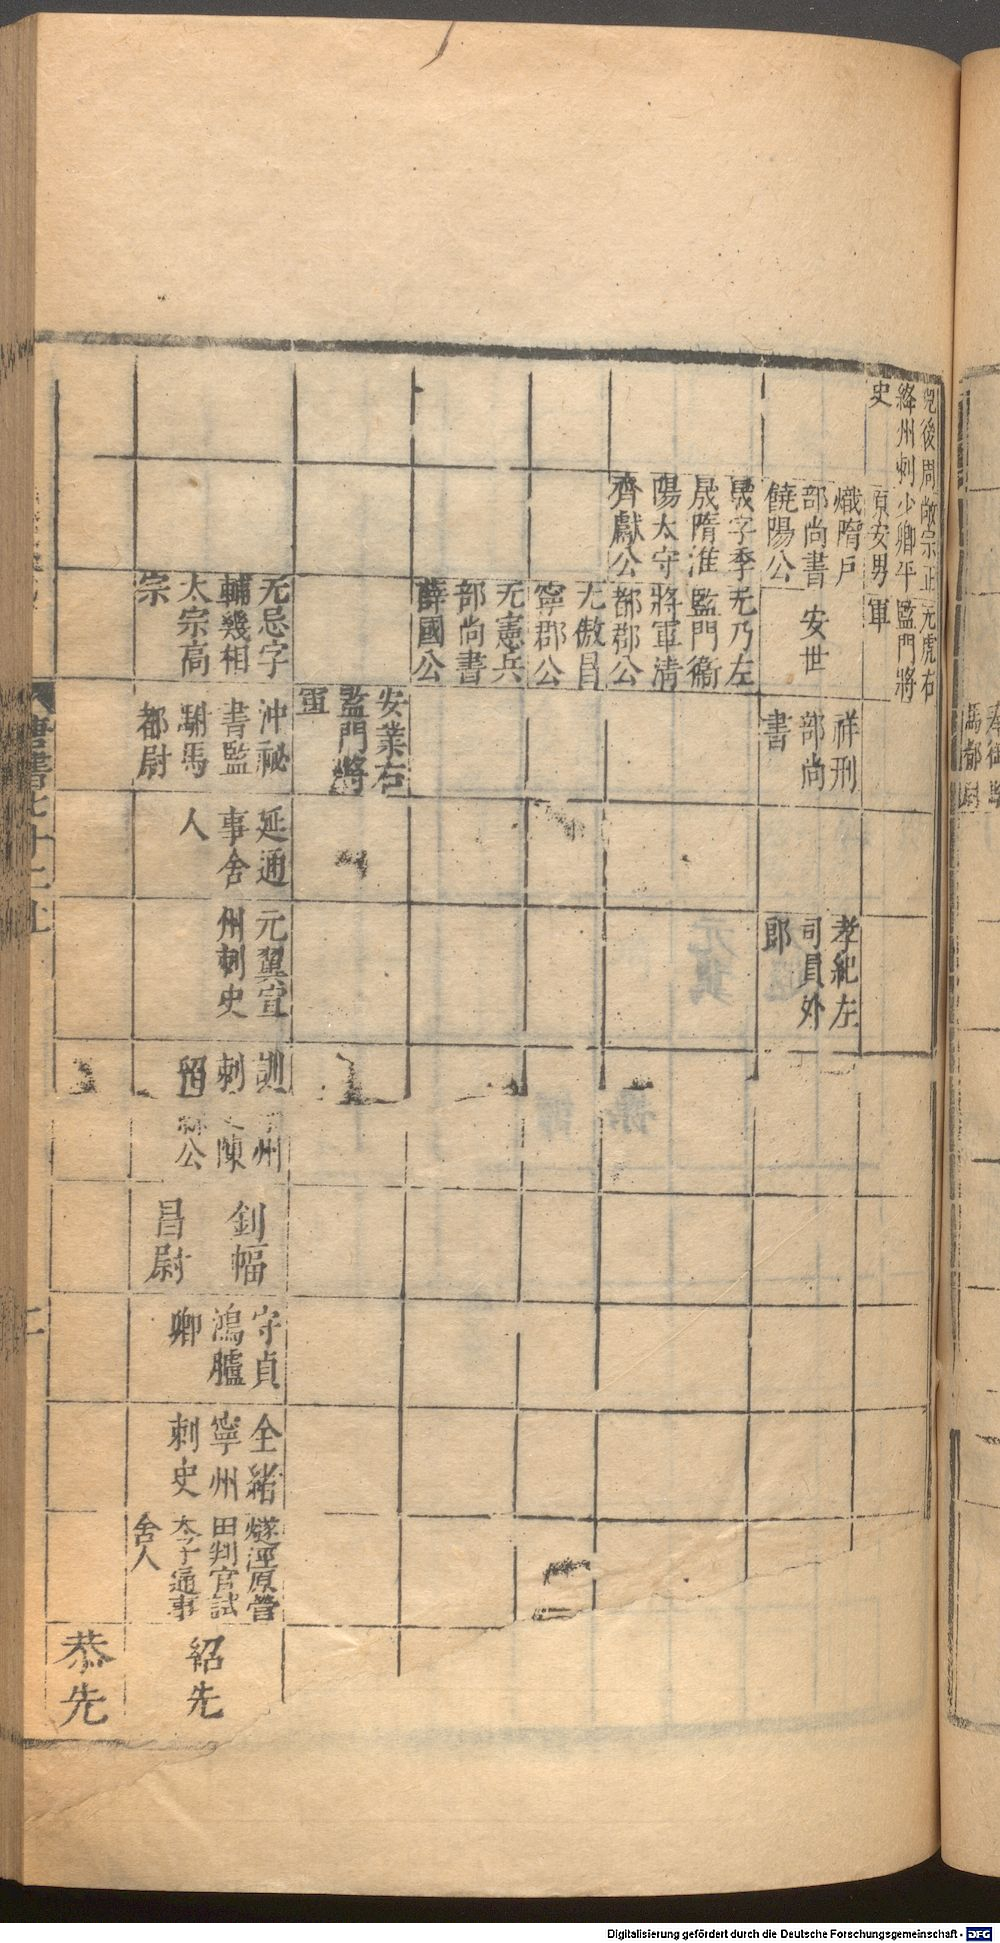 兕後周
絳州刺
史
敞宗正
少卿平
原安男
元虎右
監門將
軍
熾隋戶
部尚書
饒陽公
安世
祥刑
部尚
書
孝紀左
司員外
郎
晟字季
晟隋淮
陽太守
齊獻公
无乃左
監門衞
將軍清
都郡公
无傲昌
寧郡公
无憲兵
部尚書
薛國公
安業右
監門將
軍
无忌字
輔幾相
太宗高
宗
沖祕
書監
駙馬
都尉
延通
事舍
人
元翼宣
州刺史
州
陳
公
釗幅
昌尉
守貞
鴻臚
卿
全緒
寧州
刺史
燧涇原營
田判官試
太子通事
舍人
紹先
恭先
唐書七十二上
馬都尉
Digitalisierung gefördert durch die Deutsche Forschungsgemeinschaft - DFG